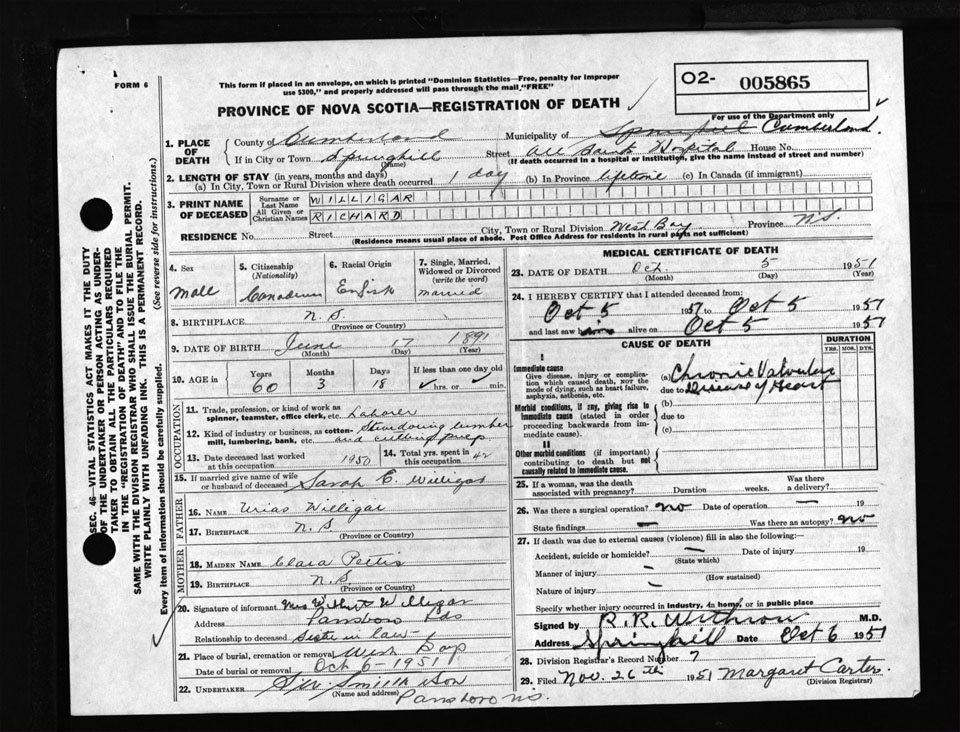 FORM 6
This form if placed in an envelope, on which is printed "Dominion Statistics—Free, penalty for improper
use $300," and properly addressed will pass through the mail "FREE"
O2- 005865
PROVINCE OF NOVA SCOTIA—REGISTRATION OF DEATH
For use of the Department only
1. PLACE OF DEATH
County of Cumberland Municipality of Cumberland
If in City or Town Springhill Street All Saints Hospital House No.
(Name) (If death occurred in a hospital or institution, give the name instead of street and number)
2. LENGTH OF STAY (in years, months and days)
(a) In City, Town or Rural Division where death occurred 1 day (b) In Province lifetime (c) In Canada (if immigrant)
3. PRINT NAME OF DECEASED
Surname or Last Name WILLIGAR
All Given or Christian Names RICHARD
RESIDENCE No. Street City, Town or Rural Division West Bay Province N.S.
(Residence means usual place of abode. Post Office Address for residents in rural parts not sufficient)
4. Sex Male
5. Citizenship (Nationality) Canadian
6. Racial Origin English
7. Single, Married, Widowed or Divorced (write the word) married
8. BIRTHPLACE N.S.
(Province or Country)
9. DATE OF BIRTH June 17 1891
(Month) (Day) (Year)
10. AGE in Years 60 Months 3 Days 18 If less than one day old hrs. or min.
OCCUPATION
11. Trade, profession, or kind of work as spinner, teamster, office clerk, etc. Laborer
12. Kind of industry or business, as cotton-mill, lumbering, bank, etc. Stevedoring lumber and cutting prop
13. Date deceased last worked at this occupation 1950
14. Total yrs. spent in this occupation 42
15. If married give name of wife or husband of deceased Sarah E. Willigar
FATHER
16. Name Urias Willigar
17. BIRTHPLACE N.S.
(Province or Country)
MOTHER
18. MAIDEN NAME Clara Pettis
19. BIRTHPLACE N.S.
(Province or Country)
20. Signature of informant Mrs Wilbert Willigar
Address Parrsboro
Relationship to deceased Sister in law
21. Place of burial, cremation or removal West Bay
Date of burial or removal Oct 6 - 1951
22. UNDERTAKER Smith & Son
(Name and address)
Parrsboro N.S.
MEDICAL CERTIFICATE OF DEATH
23. DATE OF DEATH Oct. 5 1951
(Month) (Day) (Year)
24. I HEREBY CERTIFY that I attended deceased from:
Oct 5 1951 to Oct 5 1951
and last saw him alive on Oct 5 1951
CAUSE OF DEATH
DURATION
YRS. MOS. DYS.
I
Immediate cause
Give disease, injury or complication which caused death, not the mode of dying, such as heart failure, asphyxia, asthenia, etc.
(a) Chronic Valvular
due to Disease of Heart
Morbid conditions, if any, giving rise to immediate cause (stated in order proceeding backwards from immediate cause).
(b)
due to
(c)
II
Other morbid conditions (if important) contributing to death but not causally related to immediate cause.
25. If a woman, was the death associated with pregnancy? Duration weeks. Was there a delivery?
26. Was there a surgical operation? no Date of operation — 19
State findings — Was there an autopsy? no
27. If death was due to external causes (violence) fill in also the following:—
Accident, suicide or homicide? — Date of injury 19
(State which)
Manner of injury —
(How sustained)
Nature of injury —
Specify whether injury occurred in industry, in home, or in public place
Signed by R. R. Withrow M.D.
Address Springhill Date Oct 6 1951
28. Division Registrar's Record Number 7
29. Filed Nov. 26th 1951 Margaret Carter
(Division Registrar)
SEC. 46—VITAL STATISTICS ACT MAKES IT THE DUTY
OF THE UNDERTAKER OR PERSON ACTING AS UNDER-
TAKER TO OBTAIN ALL THE PARTICULARS REQUIRED
IN THE "REGISTRATION OF DEATH" AND TO FILE THE
SAME WITH THE DIVISION REGISTRAR WHO SHALL ISSUE THE BURIAL PERMIT.
WRITE PLAINLY WITH UNFADING INK. THIS IS A PERMANENT RECORD.
Every item of information should be carefully supplied. (See reverse side for instructions.)